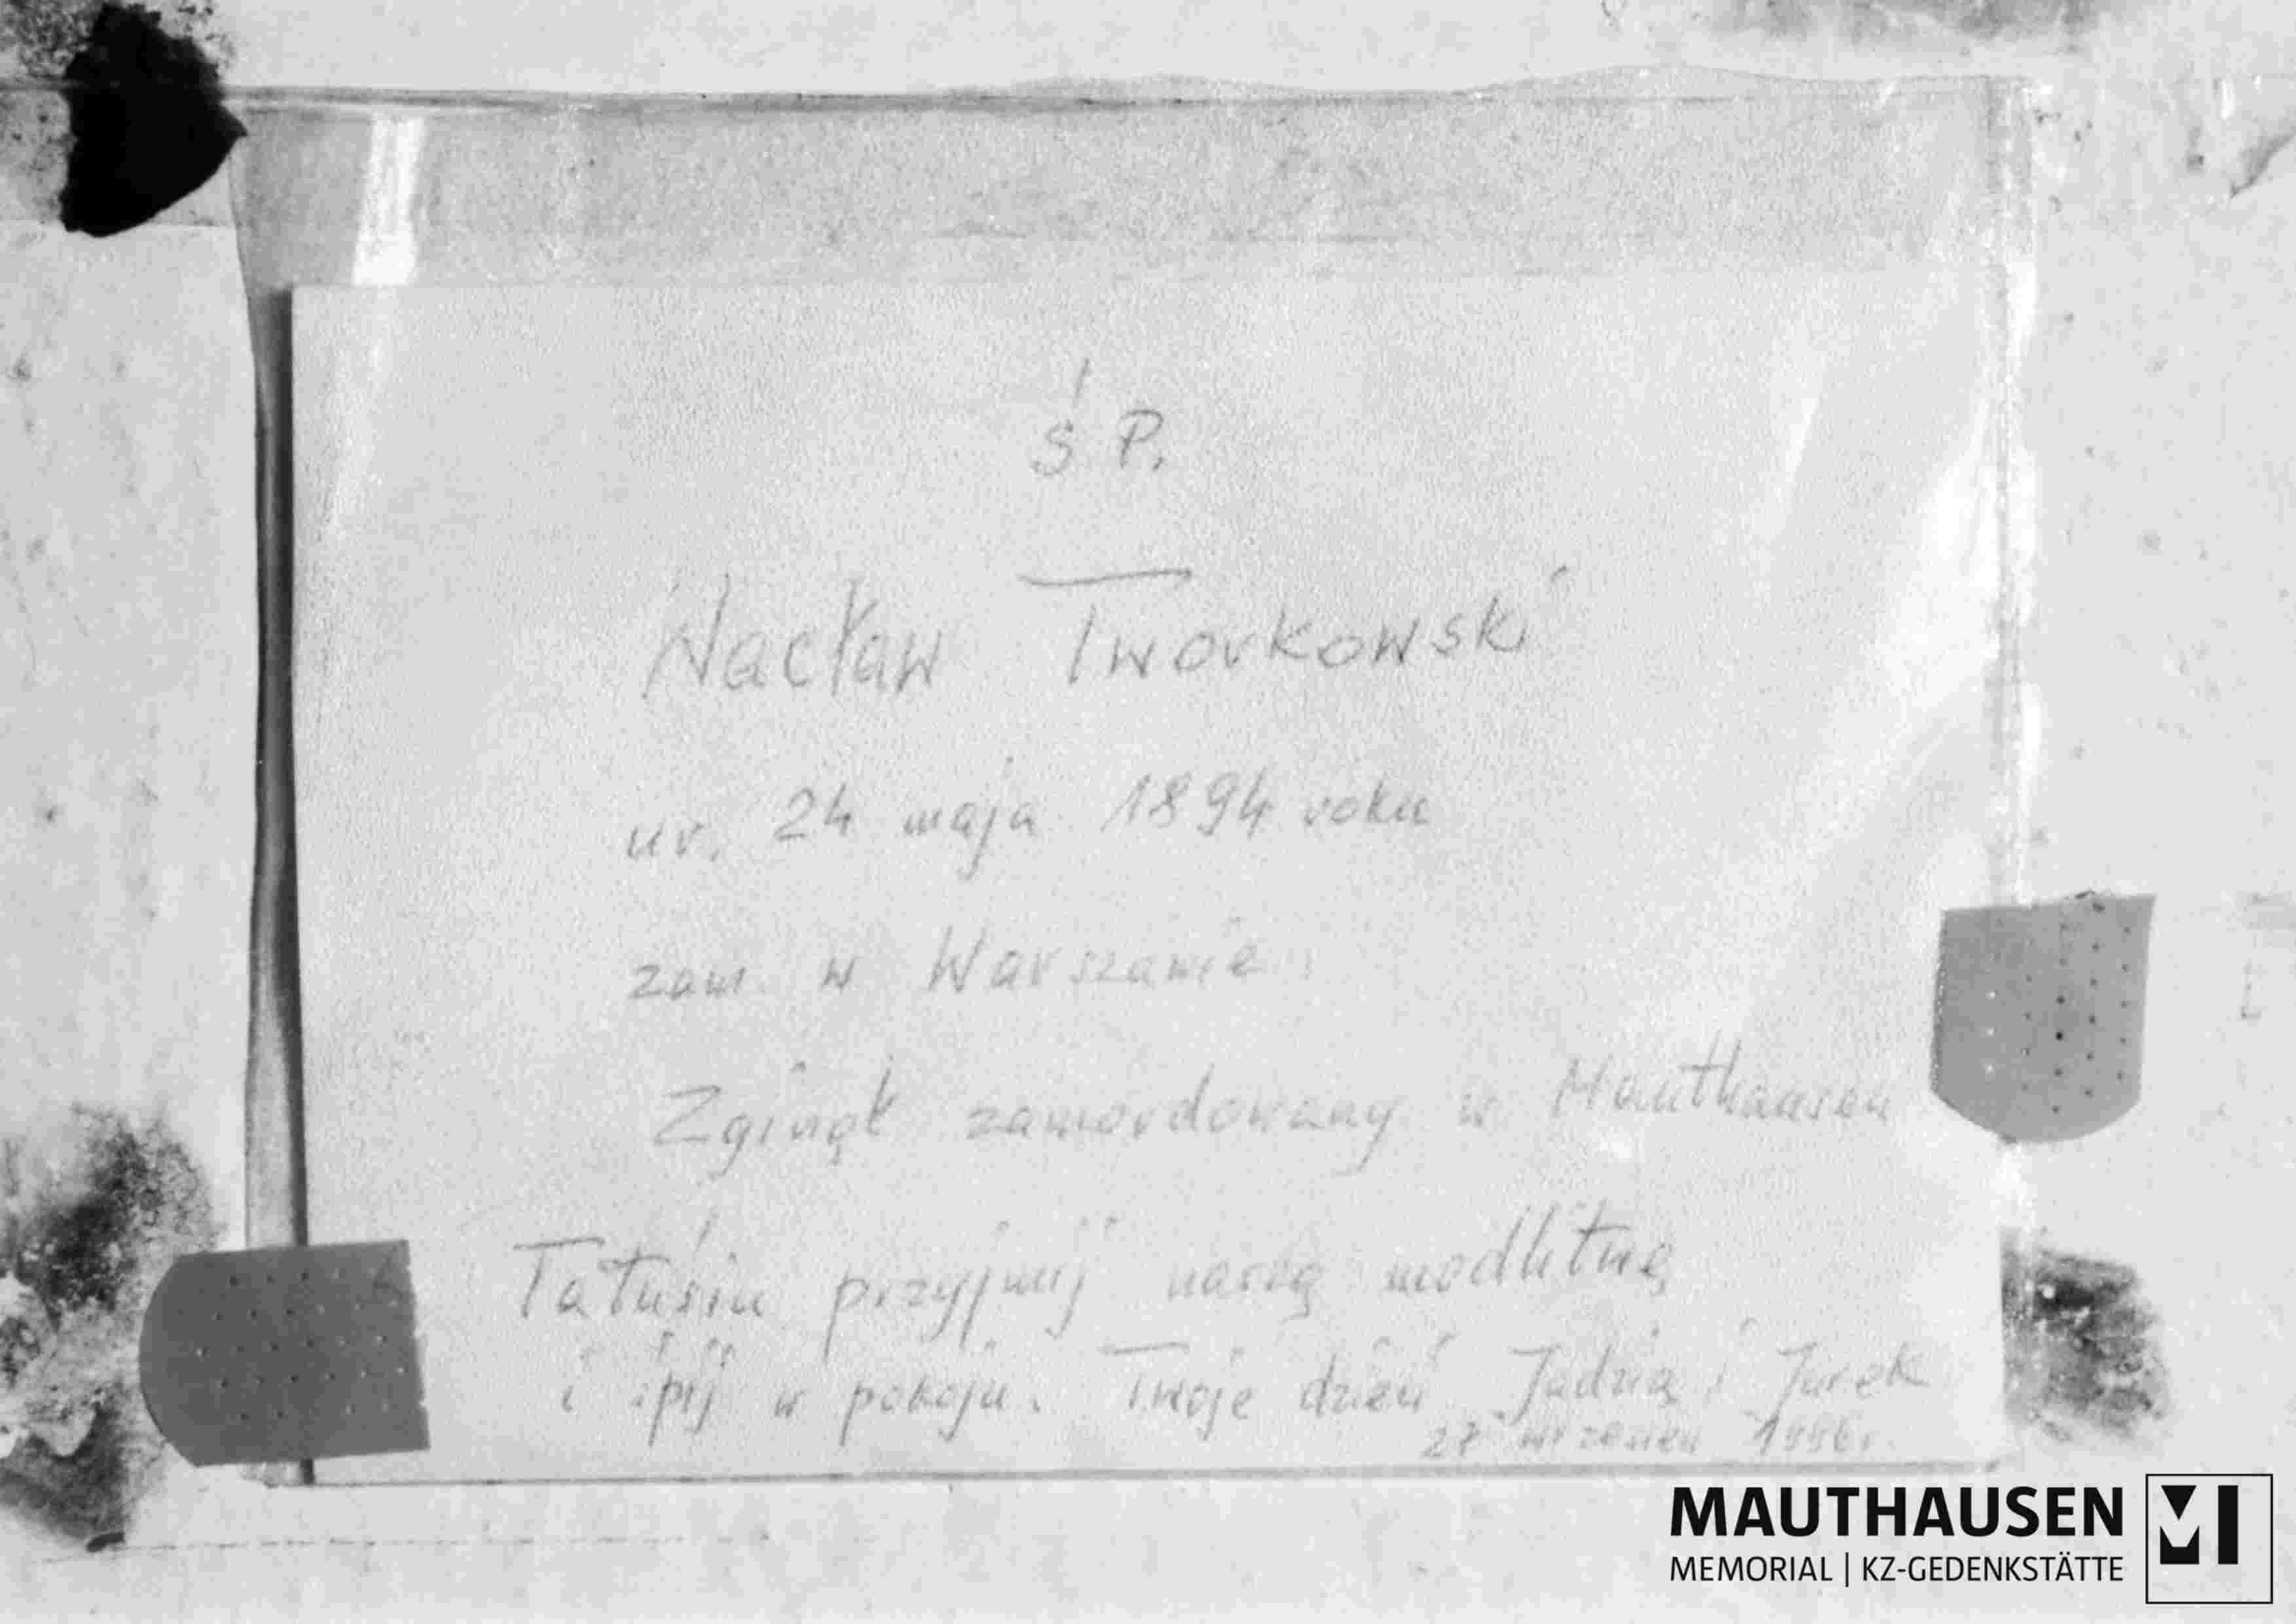 Ś P.
Wacław Tworkowski
ur. 24 maja 1894 roku
zam. w Warszawie.
Zginął zamordowany w Mauthausen
Tatusiu przyjmij naszą modlitwę
i śpij w pokoju. Twoje dzieci Jadzia i Jurek
27 wrzesień
MAUTHAUSEN
MEMORIAL | KZ-GEDENKSTÄTTE